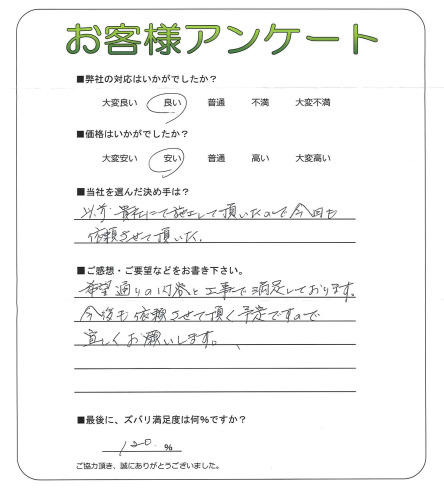 お客様アンケート
■弊社の対応はいかがでしたか？
大変良い 良い 普通 不満 大変不満
■価格はいかがでしたか？
大変安い 安い 普通 高い 大変高い
■当社を選んだ決め手は？
以前、貴社にて施工して頂いたので今回も
依頼させて頂いた。
■ご感想・ご要望などをお書き下さい。
希望通りの内容と工事で満足しております。
今後も依頼させて頂く予定ですので
宜しくお願いします。
■最後に、ズバリ満足度は何％ですか？
120 %
ご協力頂き、誠にありがとうございました。